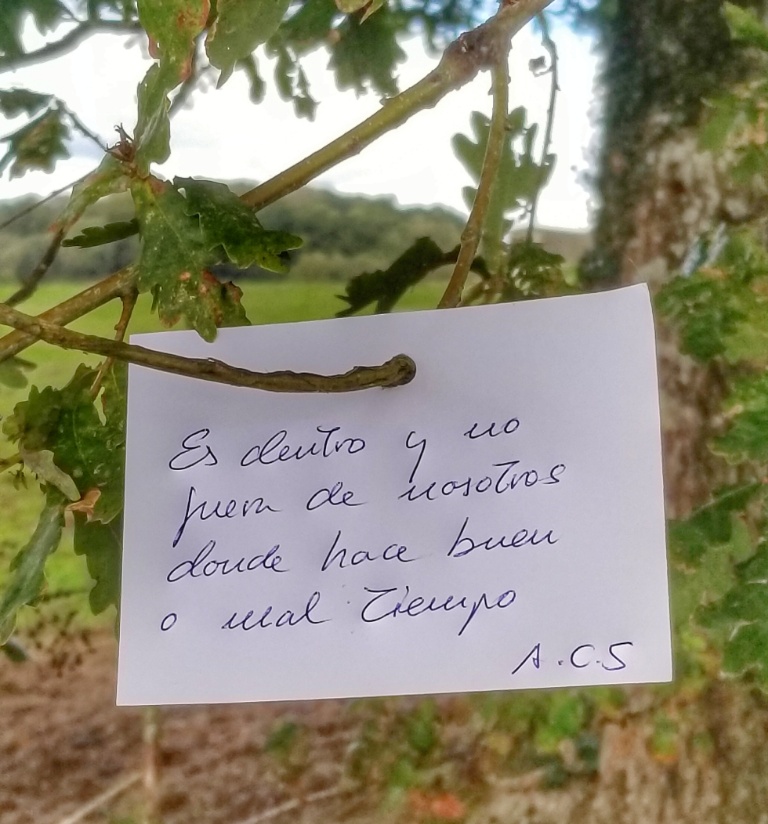 Es dentro y no
fuera de nosotros
donde hace buen
o mal tiempo
A.C.S